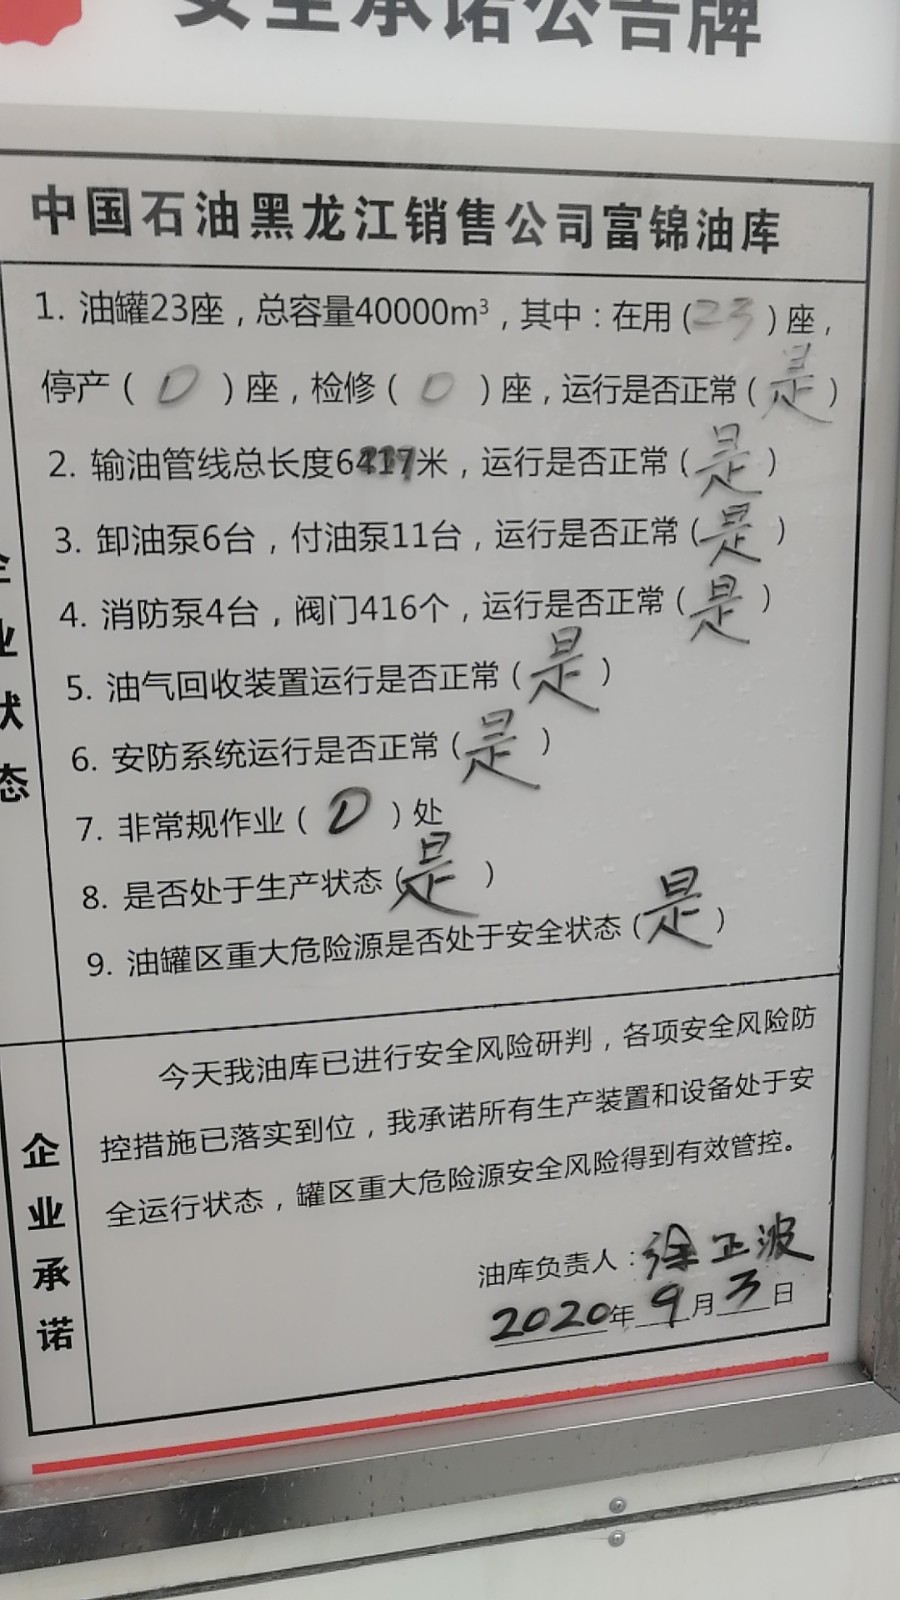 安全承诺公告牌
中国石油黑龙江销售公司富锦油库
企业状态
1. 油罐23座，总容量40000m³，其中：在用（23）座，
停产（0）座，检修（0）座，运行是否正常（是）
2. 输油管线总长度米，运行是否正常（是）
3. 卸油泵6台，付油泵11台，运行是否正常（是）
4. 消防泵4台，阀门416个，运行是否正常（是）
5. 油气回收装置运行是否正常（是）
6. 安防系统运行是否正常（是）
7. 非常规作业（0）处
8. 是否处于生产状态（是）
9. 油罐区重大危险源是否处于安全状态（是）
企业承诺
今天我油库已进行安全风险研判，各项安全风险防
控措施已落实到位，我承诺所有生产装置和设备处于安
全运行状态，罐区重大危险源安全风险得到有效管控。
油库负责人：徐正波
2020年9月3日